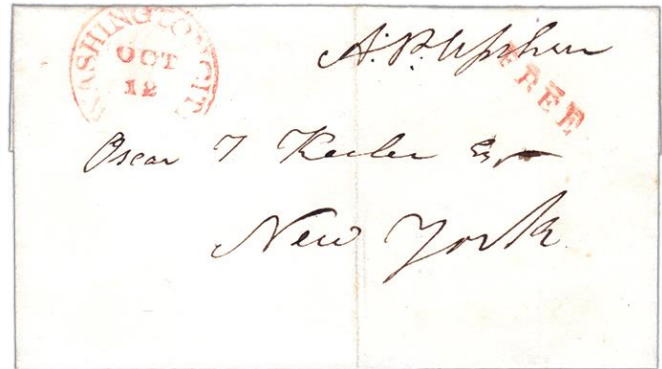 WASHINGTON CIT
OCT
12
A. P. Upshur
FREE
Oscar T Keeler Esq
New York